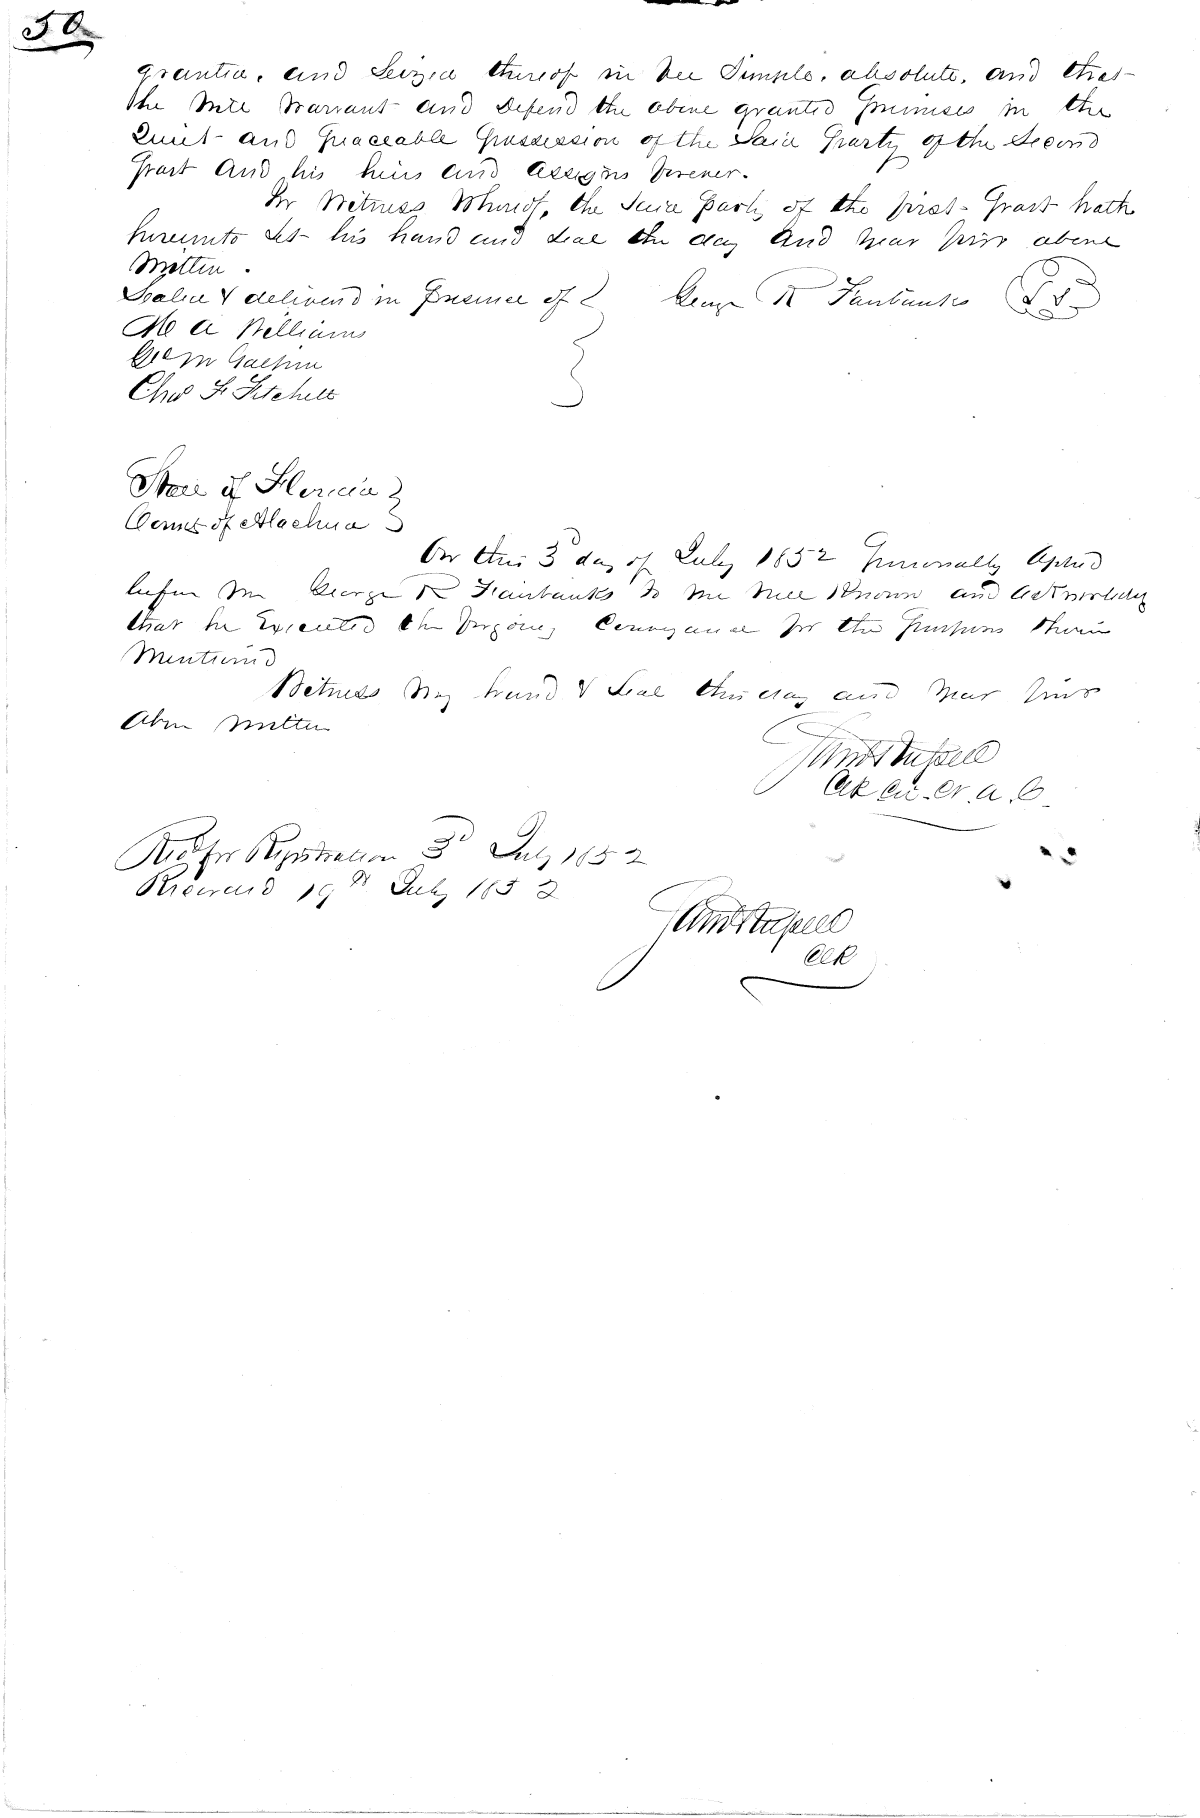 50
granted, and Seized thereof in Fee Simple, absolute, and that
he will Warrant and Defend the above granted Premises in the
Quiet and Peaceable Possession of the Said Party of the Second
Part and his heirs and assigns forever.
In Witness Whereof, the Said Party of the first Part hath
hereunto Set his hand and Seal the day and year first above
Written.
Sealed & delivered in Presence of George R Fairbanks L S
M A Williams
Geo M Galphin
Chas F Fitchett
State of Florida
County of Alachua
On this 3d day of July 1852 Personally Apprd
before me George R Fairbanks to me well Known and acknowledg
that he Executed the forgoing Conveyance for the Purposes therein
Mentioned
Witness My hand & Seal this day and year first
above written
Clk Cir. Ct. A. C.
Recd for Registration 3d July 1852
Recorded 19th July 1852
Clk